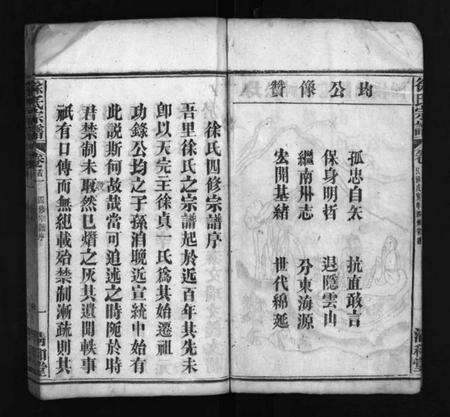 徐氏宗譜
均公像贊
孤忠自矢 抗直敢言
保身明哲 退隱雲山
繼南州志 分東海源
宏開基緒 世代綿延
徐氏四修宗譜序
吾里徐氏之宗譜起於近百年其先未
即以天完王徐貞一氏為其始遷祖
功錄公均之子孫消晚近宣統中始有
此說斯何故哉當可追述之時區於時
君禁制未敢然已燼之灰其遺聞軼事
祇有口傳而無紀載始禁制漸疏則其
徐氏宗譜
卷首
四修譜序
清和堂